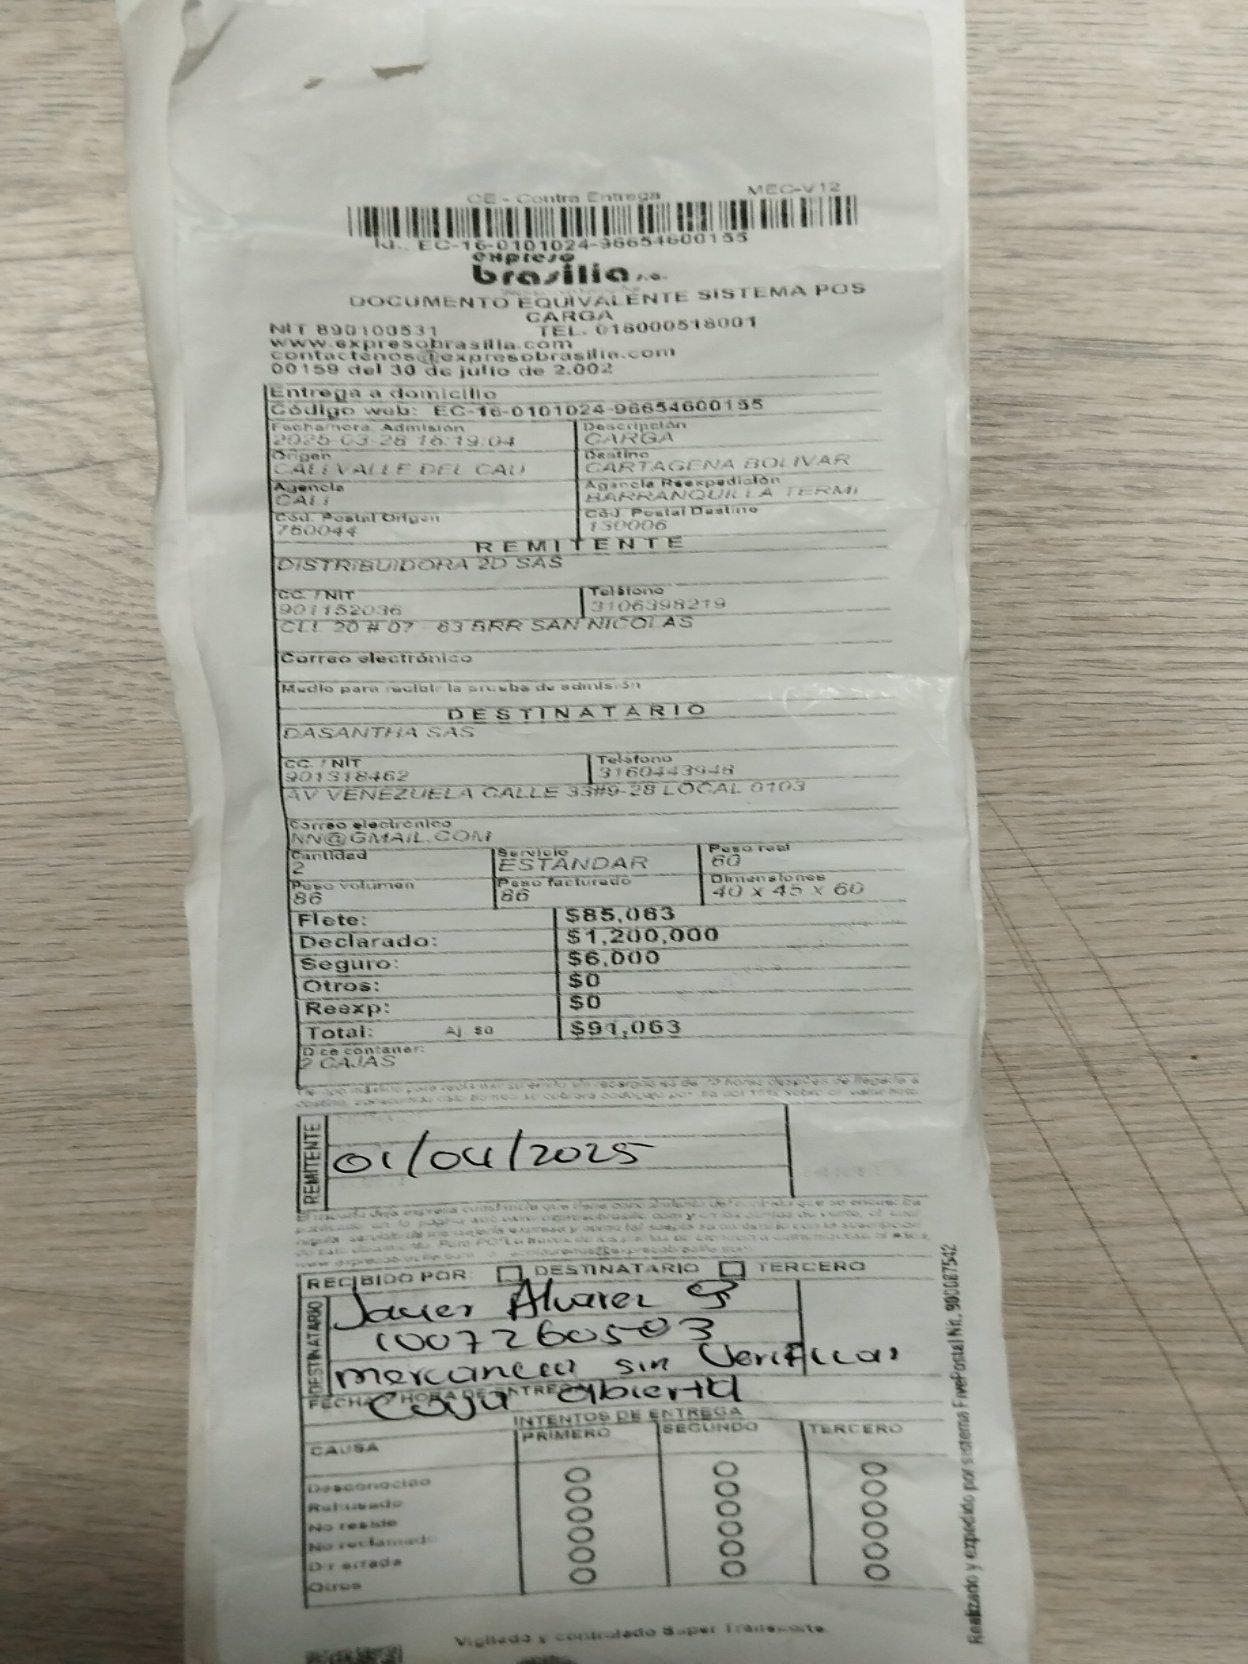 CE - Contra Entrega MEC-V12
Id.: EC-16-0101024-96654600155
expreso
brasilia s.a.
DOCUMENTO EQUIVALENTE SISTEMA POS
CARGA
NIT 890100531 TEL. 018000518001
www.expresobrasilia.com
contactenos@expresobrasilia.com
00159 del 30 de julio de 2.002
Entrega a domicilio
Código web: EC-16-0101024-96654600155
Fecha/hora Admisión Descripción
2025-03-28 16:19:04 CARGA
Origen Destino
CALI VALLE DEL CAU CARTAGENA BOLIVAR
Agencia Agencia Reexpedición
CALI BARRANQUILLA TERMI
Cód. Postal Origen Cód. Postal Destino
760044 130006
REMITENTE
DISTRIBUIDORA 2D SAS
CC. / NIT Teléfono
901152036 3106398219
CLL 20 # 07 - 63 BRR SAN NICOLAS
Correo electrónico
Medio para recibir la prueba de admisión
DESTINATARIO
DASANTHA SAS
CC. / NIT Teléfono
901318462 3160443948
AV VENEZUELA CALLE 33#9-28 LOCAL 0103
Correo electrónico
NN@GMAIL.COM
Cantidad Servicio Peso real
2 ESTANDAR 60
Peso volumen Peso facturado Dimensiones
86 86 40 x 45 x 60
Flete: $85,063
Declarado: $1,200,000
Seguro: $6,000
Otros: $0
Reexp: $0
Total: Aj. $0 $91,063
Dice contener:
2 CAJAS
REMITENTE
01/04/2025
RECIBIDO POR: DESTINATARIO TERCERO
DESTINATARIO
Javier Alvarez
1007260503
mercancia sin Verificar
Caja abierta
FECHA Y HORA DE ENTREGA
INTENTOS DE ENTREGA
CAUSA PRIMERO SEGUNDO TERCERO
Desconocido
Rehusado
No reside
No reclamado
Dir errada
Otros
Vigilado y controlado Super Transporte.
Realizado y expedido por sistema FivePostal Nit. 900087542